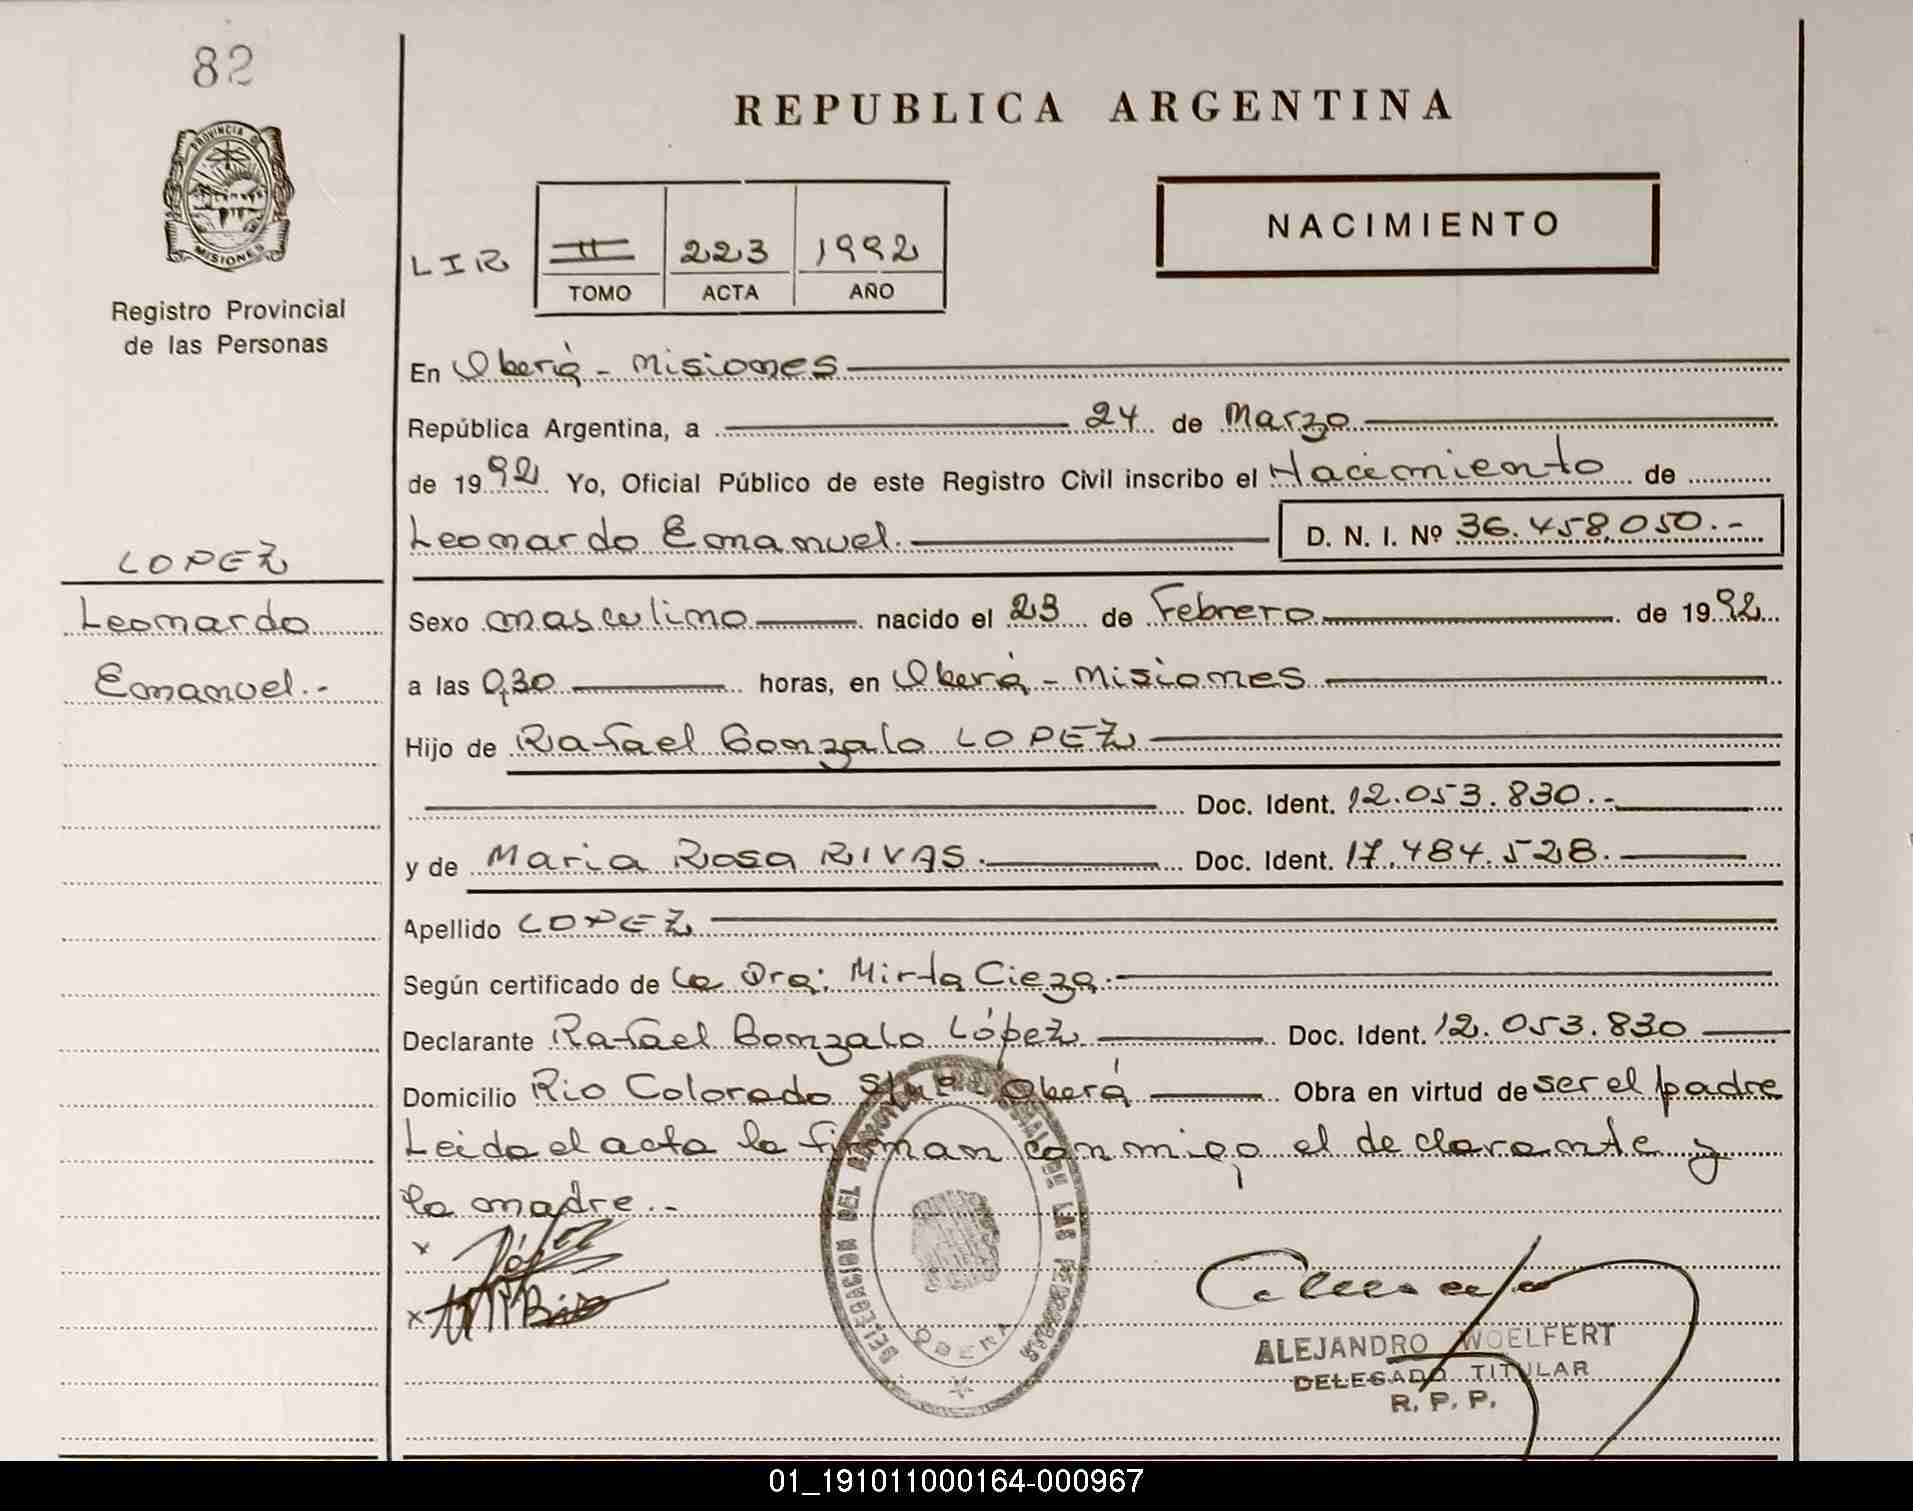 82
PROVINCIA DE
MISIONES
Registro Provincial
de las Personas
REPUBLICA ARGENTINA
NACIMIENTO
LIR II 223 1992
TOMO ACTA AÑO
En Oberá - Misiones
República Argentina, a 24 de Marzo
de 1992 Yo, Oficial Público de este Registro Civil inscribo el Nacimiento de
Leonardo Emanuel. D. N. I. Nº 36.458.050.-
LOPEZ
Leonardo
Emanuel.-
Sexo masculino nacido el 23 de Febrero de 1992
a las 0,30 horas, en Oberá - Misiones
Hijo de Rafael Gonzalo LOPEZ
Doc. Ident. 12.053.830.-
y de Maria Rosa RIVAS. Doc. Ident. 17.484.528.
Apellido LOPEZ
Según certificado de la Dra: Mirta Cieza.
Declarante Rafael Gonzalo López Doc. Ident. 12.053.830
Domicilio Rio Colorado Oberá Obra en virtud de ser el padre
Leida el acta la firman conmigo el declarante y
la madre.-
x López
x
DELEGACION DEL DE LAS PERSONAS
OBERA
ALEJANDRO WOELFERT
DELEGADO TITULAR
R. P. P.
01_191011000164-000967